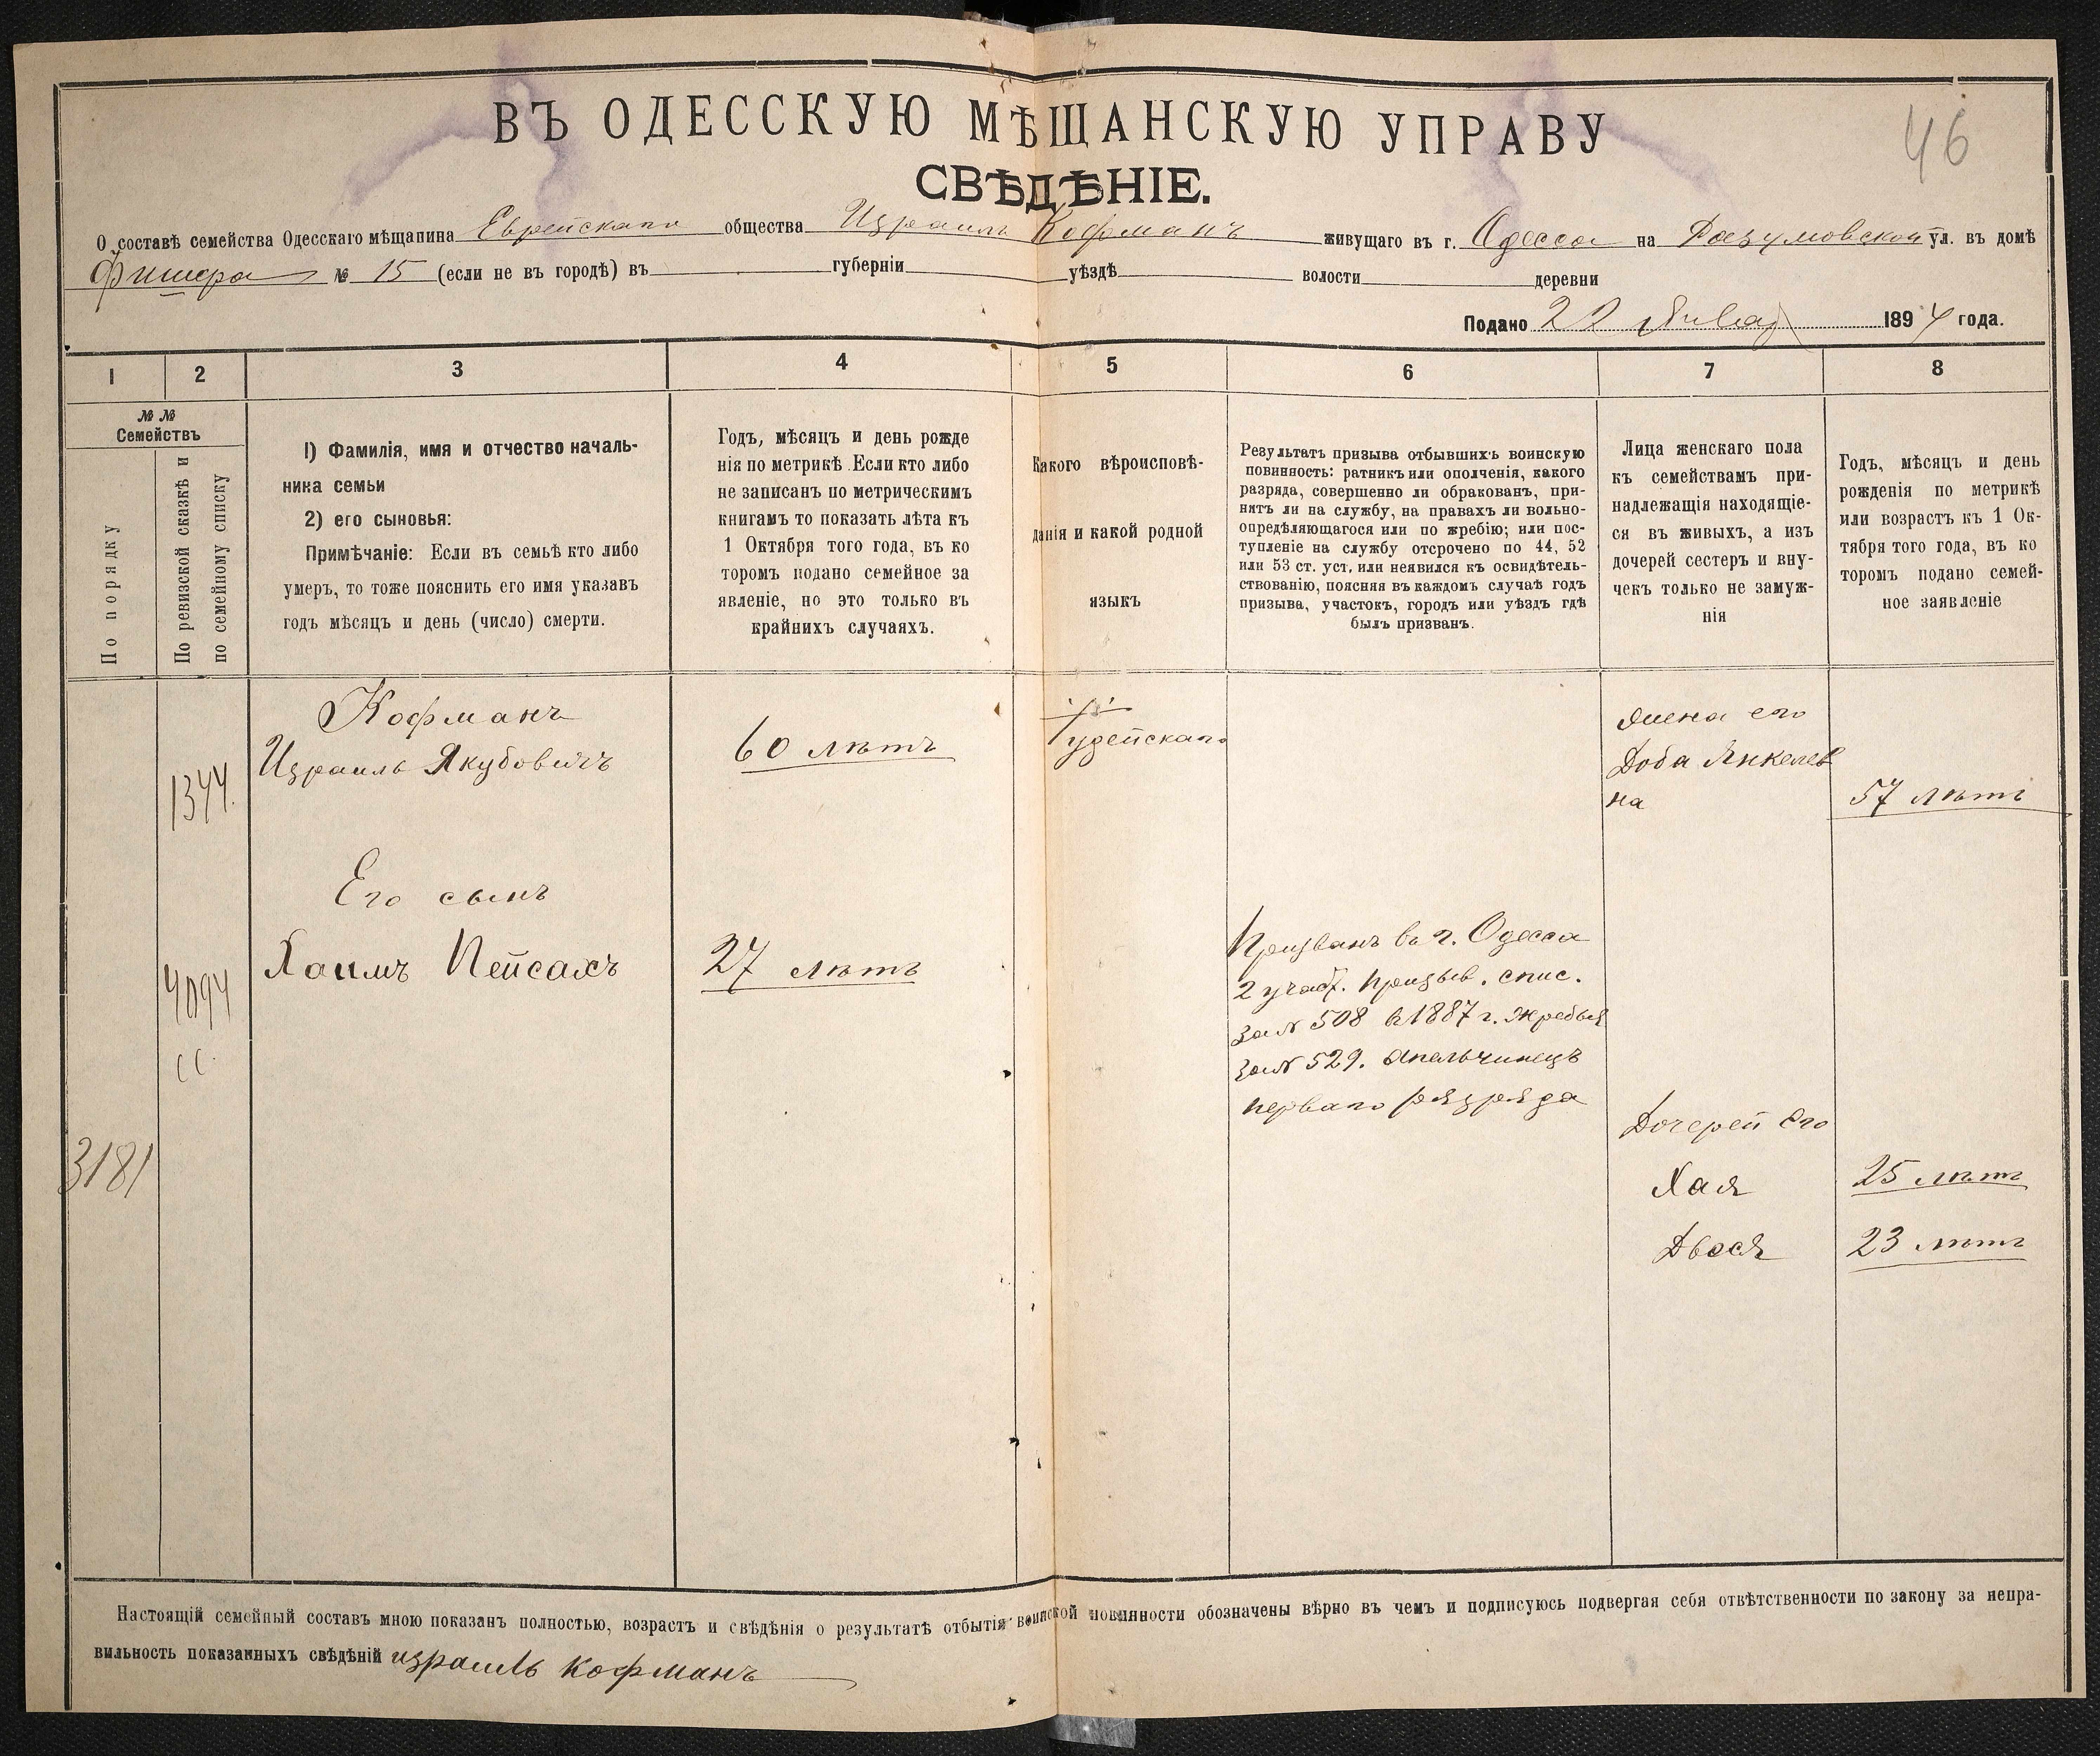 46
ВЪ ОДЕССКУЮ МѢЩАНСКУЮ УПРАВУ
СВѢДѢНІЕ.
О составѣ семейства Одесскаго мѣщанина Еврейскаго общества Израиль Кофманъ живущаго въ г. Одесса на Разумовской ул. въ домѣ
Фишера № 15 (если не въ городѣ) въ губерніи уѣздѣ волости деревни
Подано 22 Январ 1894 года.
1 2 3 4 5 6 7 8
№ №
Семействъ
По порядку
По ревизской сказкѣ и
по семейному списку
1) Фамилія, имя и отчество началь-
ника семьи
2) его сыновья:
Примѣчаніе: Если въ семьѣ кто либо
умеръ, то тоже пояснить его имя указавъ
годъ мѣсяцъ и день (число) смерти.
Годъ, мѣсяцъ и день рожде
нія по метрикѣ. Если кто либо
не записанъ по метрическимъ
книгамъ то показать лѣта къ
1 Октября того года, въ ко
торомъ подано семейное за
явленіе, но это только въ
крайнихъ случаяхъ.
Какого вѣроисповѣ-
данія и какой родной
языкъ
Результатъ призыва отбывшихъ воинскую
повинность: ратникъ или ополченія, какого
разряда, совершенно ли обракованъ, при-
нятъ ли на службу, на правахъ ли вольно-
опредѣляющагося или по жребію; или пос-
тупленіе на службу отсрочено по 44, 52
или 53 ст. уст, или неявился къ освидѣтель-
ствованію, поясняя въ каждомъ случаѣ годъ
призыва, участокъ, городъ или уѣздъ гдѣ
былъ призванъ.
Лица женскаго пола
къ семействамъ при-
надлежащія находящіе-
ся въ живыхъ, а изъ
дочерей сестеръ и вну-
чекъ только не замуж-
нія
Годъ, мѣсяцъ и день
рожденія по метрикѣ
или возрастъ къ 1 Ок-
тября того года, въ ко
торомъ подано семей-
ное заявленіе
1344.
Кофманъ
Израиль Якубовичъ
60 лѣтъ
Іудейскаго
Жена его
Доба Янкелев
на
57 лѣтъ
Его сынъ
4094
сс.
Хаимъ Пейсахъ
27 лѣтъ
Призванъ въ г. Одесса
2 участ. призыв. спис.
за № 508 въ 1887 г. жребья
за № 529. апельчинецъ
перваго разряда
3181
Дочерей его
Хая 25 лѣтъ
Двося 23 лѣтъ
Настоящій семейный составъ мною показанъ полностью, возрастъ и свѣдѣнія о результатѣ отбытія воинской повинности обозначены вѣрно въ чемъ и подписуюсь подвергая себя отвѣтственности по закону за непра-
вильность показанныхъ свѣдѣній израиль кофманъ